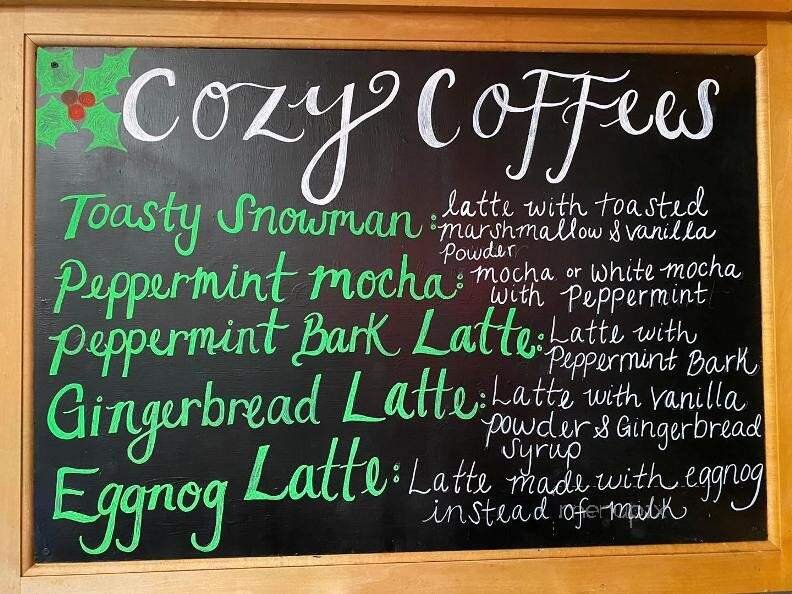 Cozy Coffees
Toasty Snowman: latte with toasted
marshmallow & vanilla
powder
Peppermint mocha: mocha or white mocha
with Peppermint
Peppermint Bark Latte: Latte with
Peppermint Bark
Gingerbread Latte: Latte with vanilla
powder & Gingerbread
Syrup
Eggnog Latte: Latte made with eggnog
instead of milk